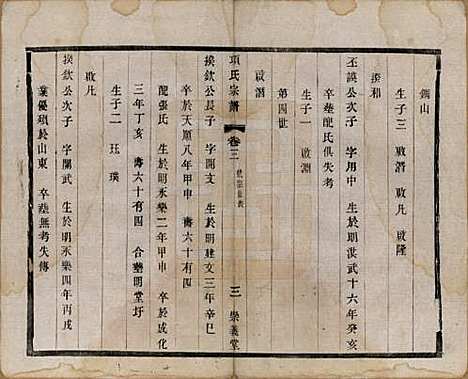 鎮山
生子三 啟潛 啟凡 啟隆
揆和
丕謨公次子 字用中 生於明洪武十六年癸亥
卒塟配氏俱失考
生子一 啟淵
第四世
啟潛
項氏宗譜 卷三 三 崇義堂
揆欽公長子 字開文 生於明建文三年辛巳
卒於天順八年甲申 壽六十有四
配張氏 生於明永樂二年甲申 卒於成化
三年丁亥 壽六十有四 合塟明堂圩
生子二 珏 璞
啟凡
揆欽公次子 字開武 生於明永樂四年丙戌
業優𧶽於山東 卒塟無考失傳